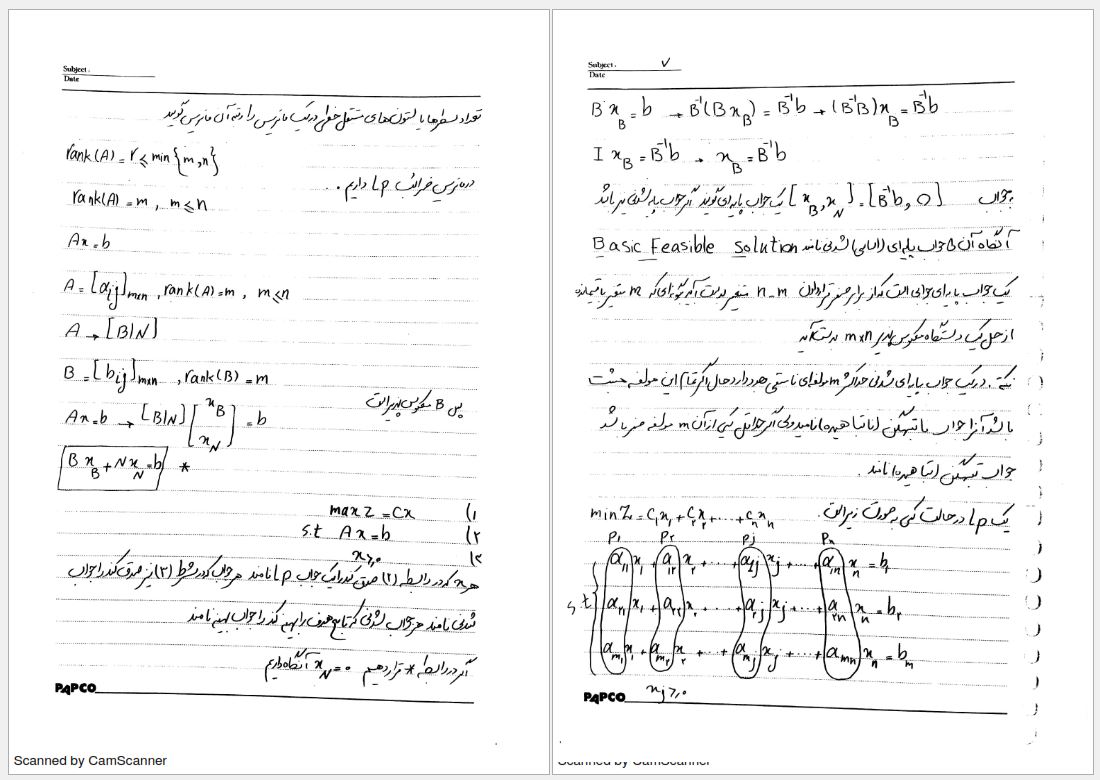 Subject:
Date
تعداد سطرها یا ستون‌های مستقل خطی در یک ماتریس را رتبه آن ماتریس گویند
rank(A) = r ≤ min{m,n}
در ماتریس ضرائب Lp داریم .
rank(A) = m , m ≤ n
Ax = b
A = [aij]m×n , rank(A) = m , m ≤ n
A → [B|N]
B = [bij]m×m , rank(B) = m
پس B معکوس پذیر است
Ax = b → [B|N] [xB xN] = b
BxB + NxN = b *
max Z = cx (۱
s.t Ax = b (۲
x ≥ ۰ (۳
هر x که در رابطه (۲) صدق کند را یک جواب Lp نامند هر جواب که در شرط (۳) نیز صدق کند را جواب
شدنی نامند هر جواب شدنی که تابع هدف را بهینه کند را جواب بهینه نامند
اگر در رابطه * قرار دهیم xN = ۰ آنگاه داریم
PAPCO
Scanned by CamScanner
Subject: ۷
Date
BxB = b → B⁻¹(BxB) = B⁻¹b → (B⁻¹B)xB = B⁻¹b
IxB = B⁻¹b → xB = B⁻¹b
جواب [xB, xN] = [B⁻¹b, 0] یک جواب پایه‌ای گویند اگر جواب پایه شدنی نیز باشد
آنگاه آن را جواب پایه‌ای (اساسی) شدنی نامند Basic Feasible Solution
یک جواب پایه‌ای جوابی است که از برابر صفر قرار دادن n-m متغیر بدست آید به گونه‌ای که m متغیر باقیمانده
از حل یک دستگاه معکوس پذیر m×m بدست آید
نکته . در یک جواب پایه‌ای شدنی حداکثر m مولفه‌ی ناصفر وجود دارد حال اگر تمام این مولفه مثبت
باشد آنرا جواب ناتبهگن (ناتباهیده) نامید ولی اگر حداقل یکی از آن m مولفه صفر باشد
جواب تبهگن (تباهیده) نامند .
یک Lp در حالت کلی به صورت زیر است
min Z = c₁x₁ + c₂x₂ + ... + cₙxₙ
P₁ P₂ Pj Pn
s.t a₁₁x₁ + a₁₂x₂ + ... + a₁jxj + ... + a₁ₙxₙ = b₁
a₂₁x₁ + a₂₂x₂ + ... + a₂jxj + ... + a₂ₙxₙ = b₂
am₁x₁ + am₂x₂ + ... + amjxj + ... + amnxn = bm
xj ≥ ۰
PAPCO
Scanned by CamScanner